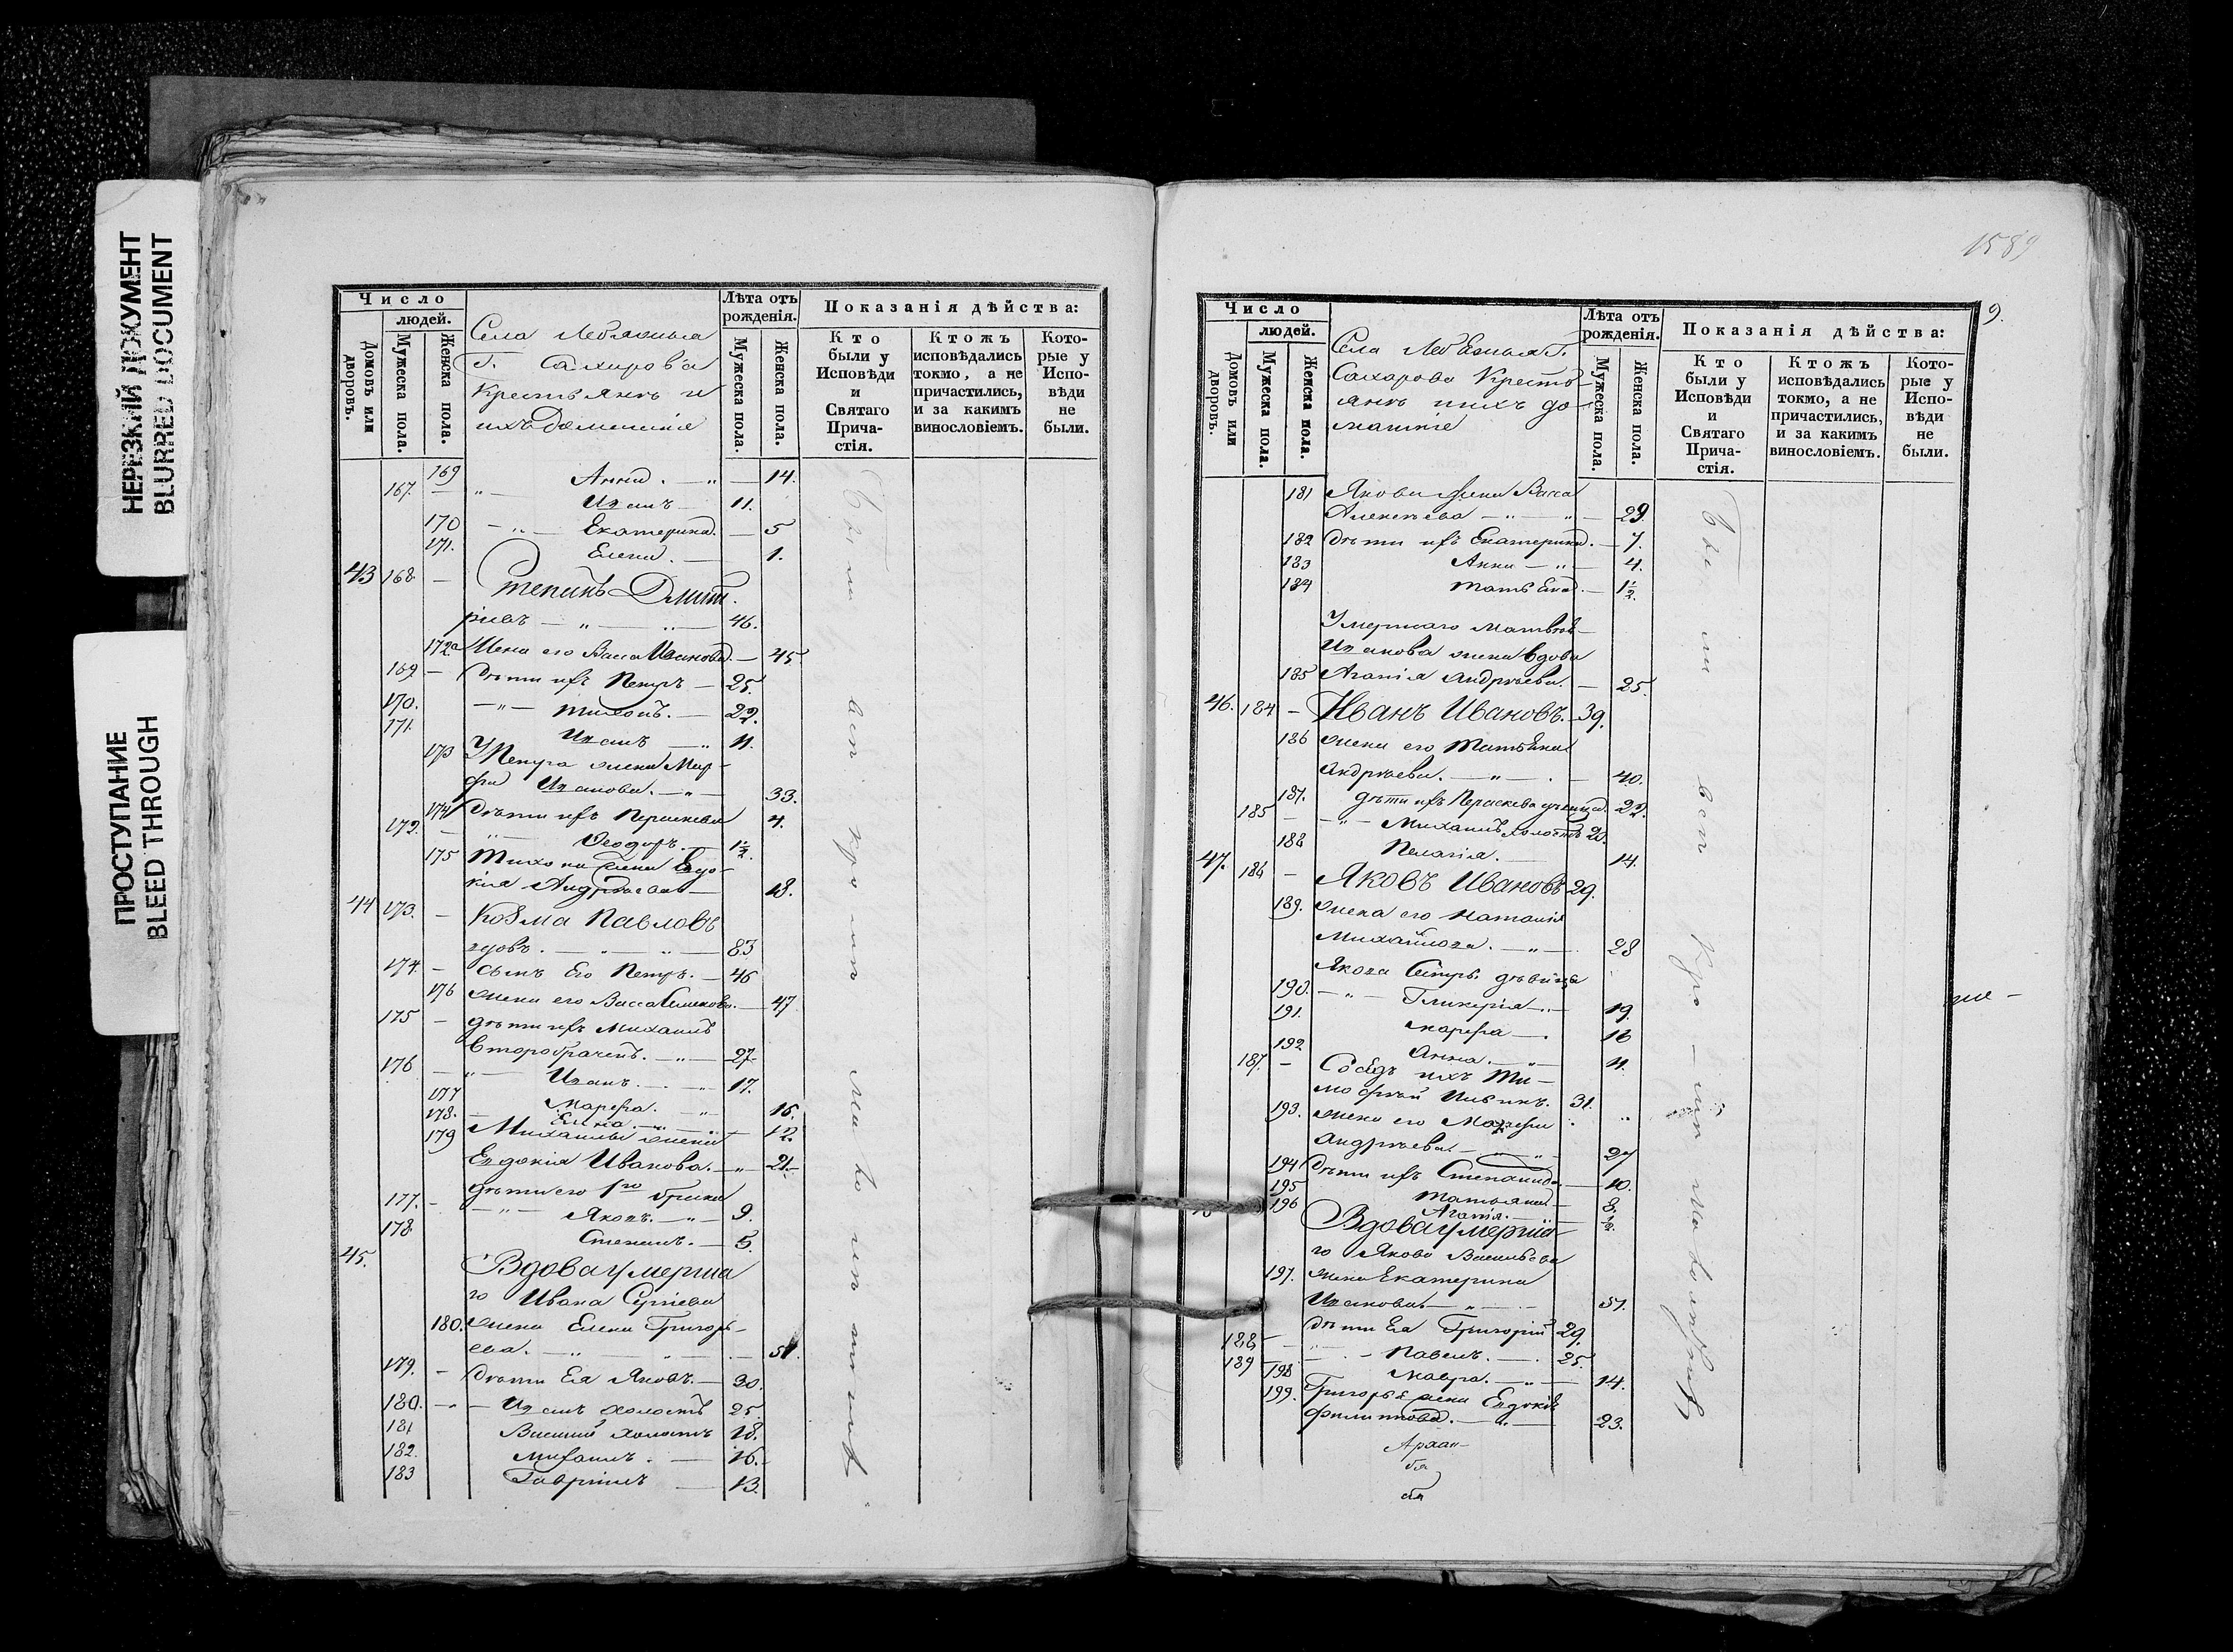 НЕРЕЗКИЙ ДОКУМЕНТ
BLURRED DOCUMENT
ПРОСТУПАНИЕ
BLEED THROUGH
Число
людей.
Домовъ или дворовъ.
Мужеска пола.
Женска пола.
Села
Г. Сахарова
Крестьянъ и
ихъ Домашнiе
Лѣта отъ рожденія.
Мужеска пола.
Женска пола.
Показанія дѣйства:
Кто были у Исповѣди и Святаго Прича-стія.
Ктожъ исповѣдались токмо, а не причастились, и за какимъ винословіемъ.
Кото-рые у Испо-вѣди не были.
169 Анна. — „ — 14.
167. — „ — Иванъ — 11.
170 — „ — Екатерина. — 5
171. Елена. — 1.
43 168 — Степанъ Дмит.
ріевъ — „ — „ — 46.
172 Жена его Васса Иванова. — 45
169 — Дѣти ихъ Петръ — 25.
170. — „ — Тихонъ. — 22.
171. Иванъ — „ 11.
173 У Петра жена Мар-
фа Иванова. — „ — 33.
174 Дѣти ихъ Параскева 4.
172. — „ — Ѳеодоръ. — 1½.
175 Тихона жена Евдо-
кія Андреева — 18.
44 173. — Козма Павловъ
вдовъ. — „ — „ — 83
174. — сынъ Его Петръ. — 46
176 жена его Васса — 47
175 — дѣти ихъ Михаилъ
второбрачен. — „ — 27.
176 — „ — Иванъ. — „ 17.
177 Марфа. — „ — 16.
178. — Елена. — „ — 12.
179 Михаилы жена
Евдокія Иванова. — „ — 21.
дѣти его 1го брака
177. — — „ — Яковъ. — „ — 9.
178 Степанъ. — 5.
45. Вдова умерша
го Ивана Сергіева
180. жена Елена Григорь-
ева. — „ — „ — 51.
179. — Дѣти Ея Яковъ. — 30.
180. — — Иванъ холостъ 25.
181 Василій холостъ 18.
182. Михаилъ. — 16.
183 Гавріилъ — 13.
Были вси кромѣ малолѣтнихъ
1589
9.
Число
людей.
Домовъ или дворовъ.
Мужеска пола.
Женска пола.
Села
Сахарова Кресть-
янъ ихъ до-
машніе
Лѣта отъ рожденія.
Мужеска пола.
Женска пола.
Показанія дѣйства:
Кто были у Исповѣди и Святаго Прича-стія.
Ктожъ исповѣдались токмо, а не причастились, и за какимъ винословіемъ.
Кото-рые у Испо-вѣди не были.
181 Якова жена Васса
Алексѣева — „ — „ — 29.
182 Дѣти ихъ Екатерина. — 7.
183 Анна — „ — 4.
184 Татьяна. — 1½.
Умершаго Матвѣя
Иванова жена вдова
185 Агапія Андреева. — 25.
46. 184 — Иванъ Ивановъ. — 39.
186 жена его Татьяна
Андреева. — „ — 40.
187. дѣти ихъ Параскева дѣвица 22.
185 — — „ — Михаилъ холостъ
188 Пелагія. — 14.
47. 186 — Яковъ Ивановъ 29.
189. жена его Наталія
Михайлова. — „ — 28
Якова Сестры дѣвицы
190. — „ — Гликерія — „ — 19.
191. Марфа — . 16
192 Анна. — „ — 11.
187. — Сосѣдъ ихъ Ти-
мофѣй 31.
193. жена его Марфа
Андреева. — „ — 27
194 Дѣти ихъ Степанида — 10.
195 Татьяна. — 8.
196 Агапія. — ½.
Вдова умерша
го Якова Васильева
197. жена Екатерина
Иванова. — „ — 51.
188 — дѣти Ея Григорій 29.
189 — — Павелъ. — . 25.
198 Мавра. — „ — 14.
199. Григорья жена Евдокія
Филиппова. — „ — 23.
Были вси кромѣ малолѣтнихъ